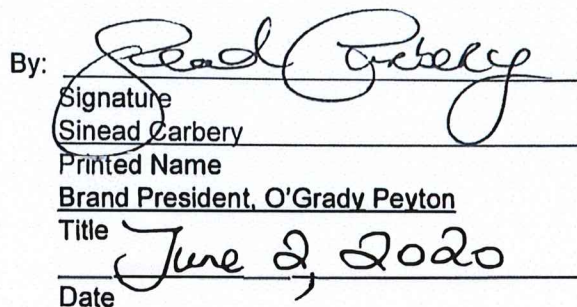 By: Sinead Carbery
Signature
Sinead Carbery
Printed Name
Brand President, O'Grady Peyton
Title
June 2, 2020
Date